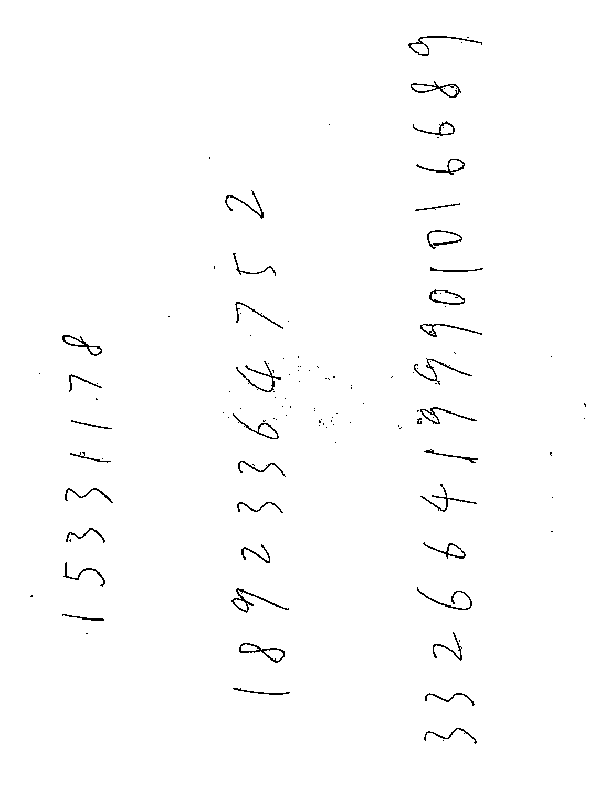 15331178
18923364752
332664199901016689